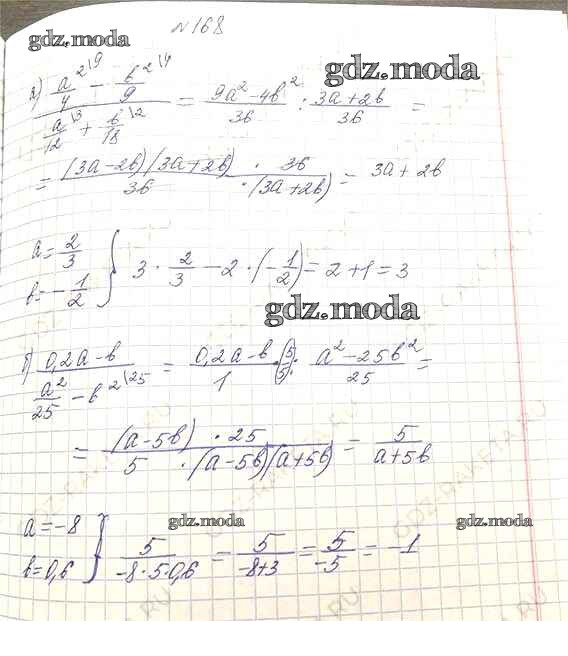 №168
gdz.moda
gdz.moda
а) (a²\9/4 − b²\4/9)/(a\3/12 + b\2/18) = (9a² − 4b²)/36 : (3a+2b)/36 =
= (3a−2b)(3a+2b)/36 · 36/·(3a+2b) = 3a + 2b
a = 2/3
b = −1/2 } 3 · 2/3 − 2 · (−1/2) = 2 + 1 = 3
gdz.moda
б) (0,2a − b)/(a²/25 − b²\25) = (0,2a − b)/1 · (5/5) : (a² − 25b²)/25 =
= (a − 5b) · 25/5 · (a−5b)(a+5b) = 5/(a+5b)
gdz.moda
gdz.moda
gdz.moda
a = −8
b = 0,6 } 5/(−8 · 5 · 0,6) = 5/(−8+3) = 5/−5 = −1